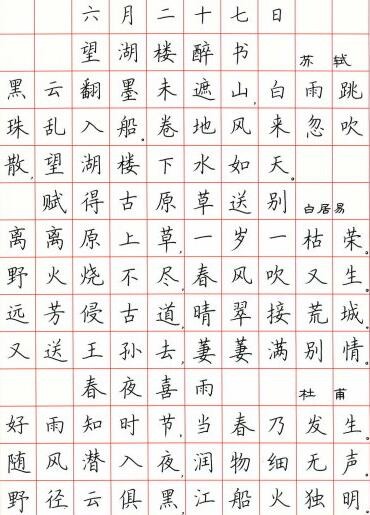 六月二十七日
望湖楼醉书 苏轼
黑云翻墨未遮山,白雨跳
珠乱入船。卷地风来忽吹
散,望湖楼下水如天。
赋得古原草送别 白居易
离离原上草,一岁一枯荣。
野火烧不尽,春风吹又生。
远芳侵古道,晴翠接荒城。
又送王孙去,萋萋满别情。
春夜喜雨 杜甫
好雨知时节,当春乃发生。
随风潜入夜,润物细无声。
野径云俱黑,江船火独明。